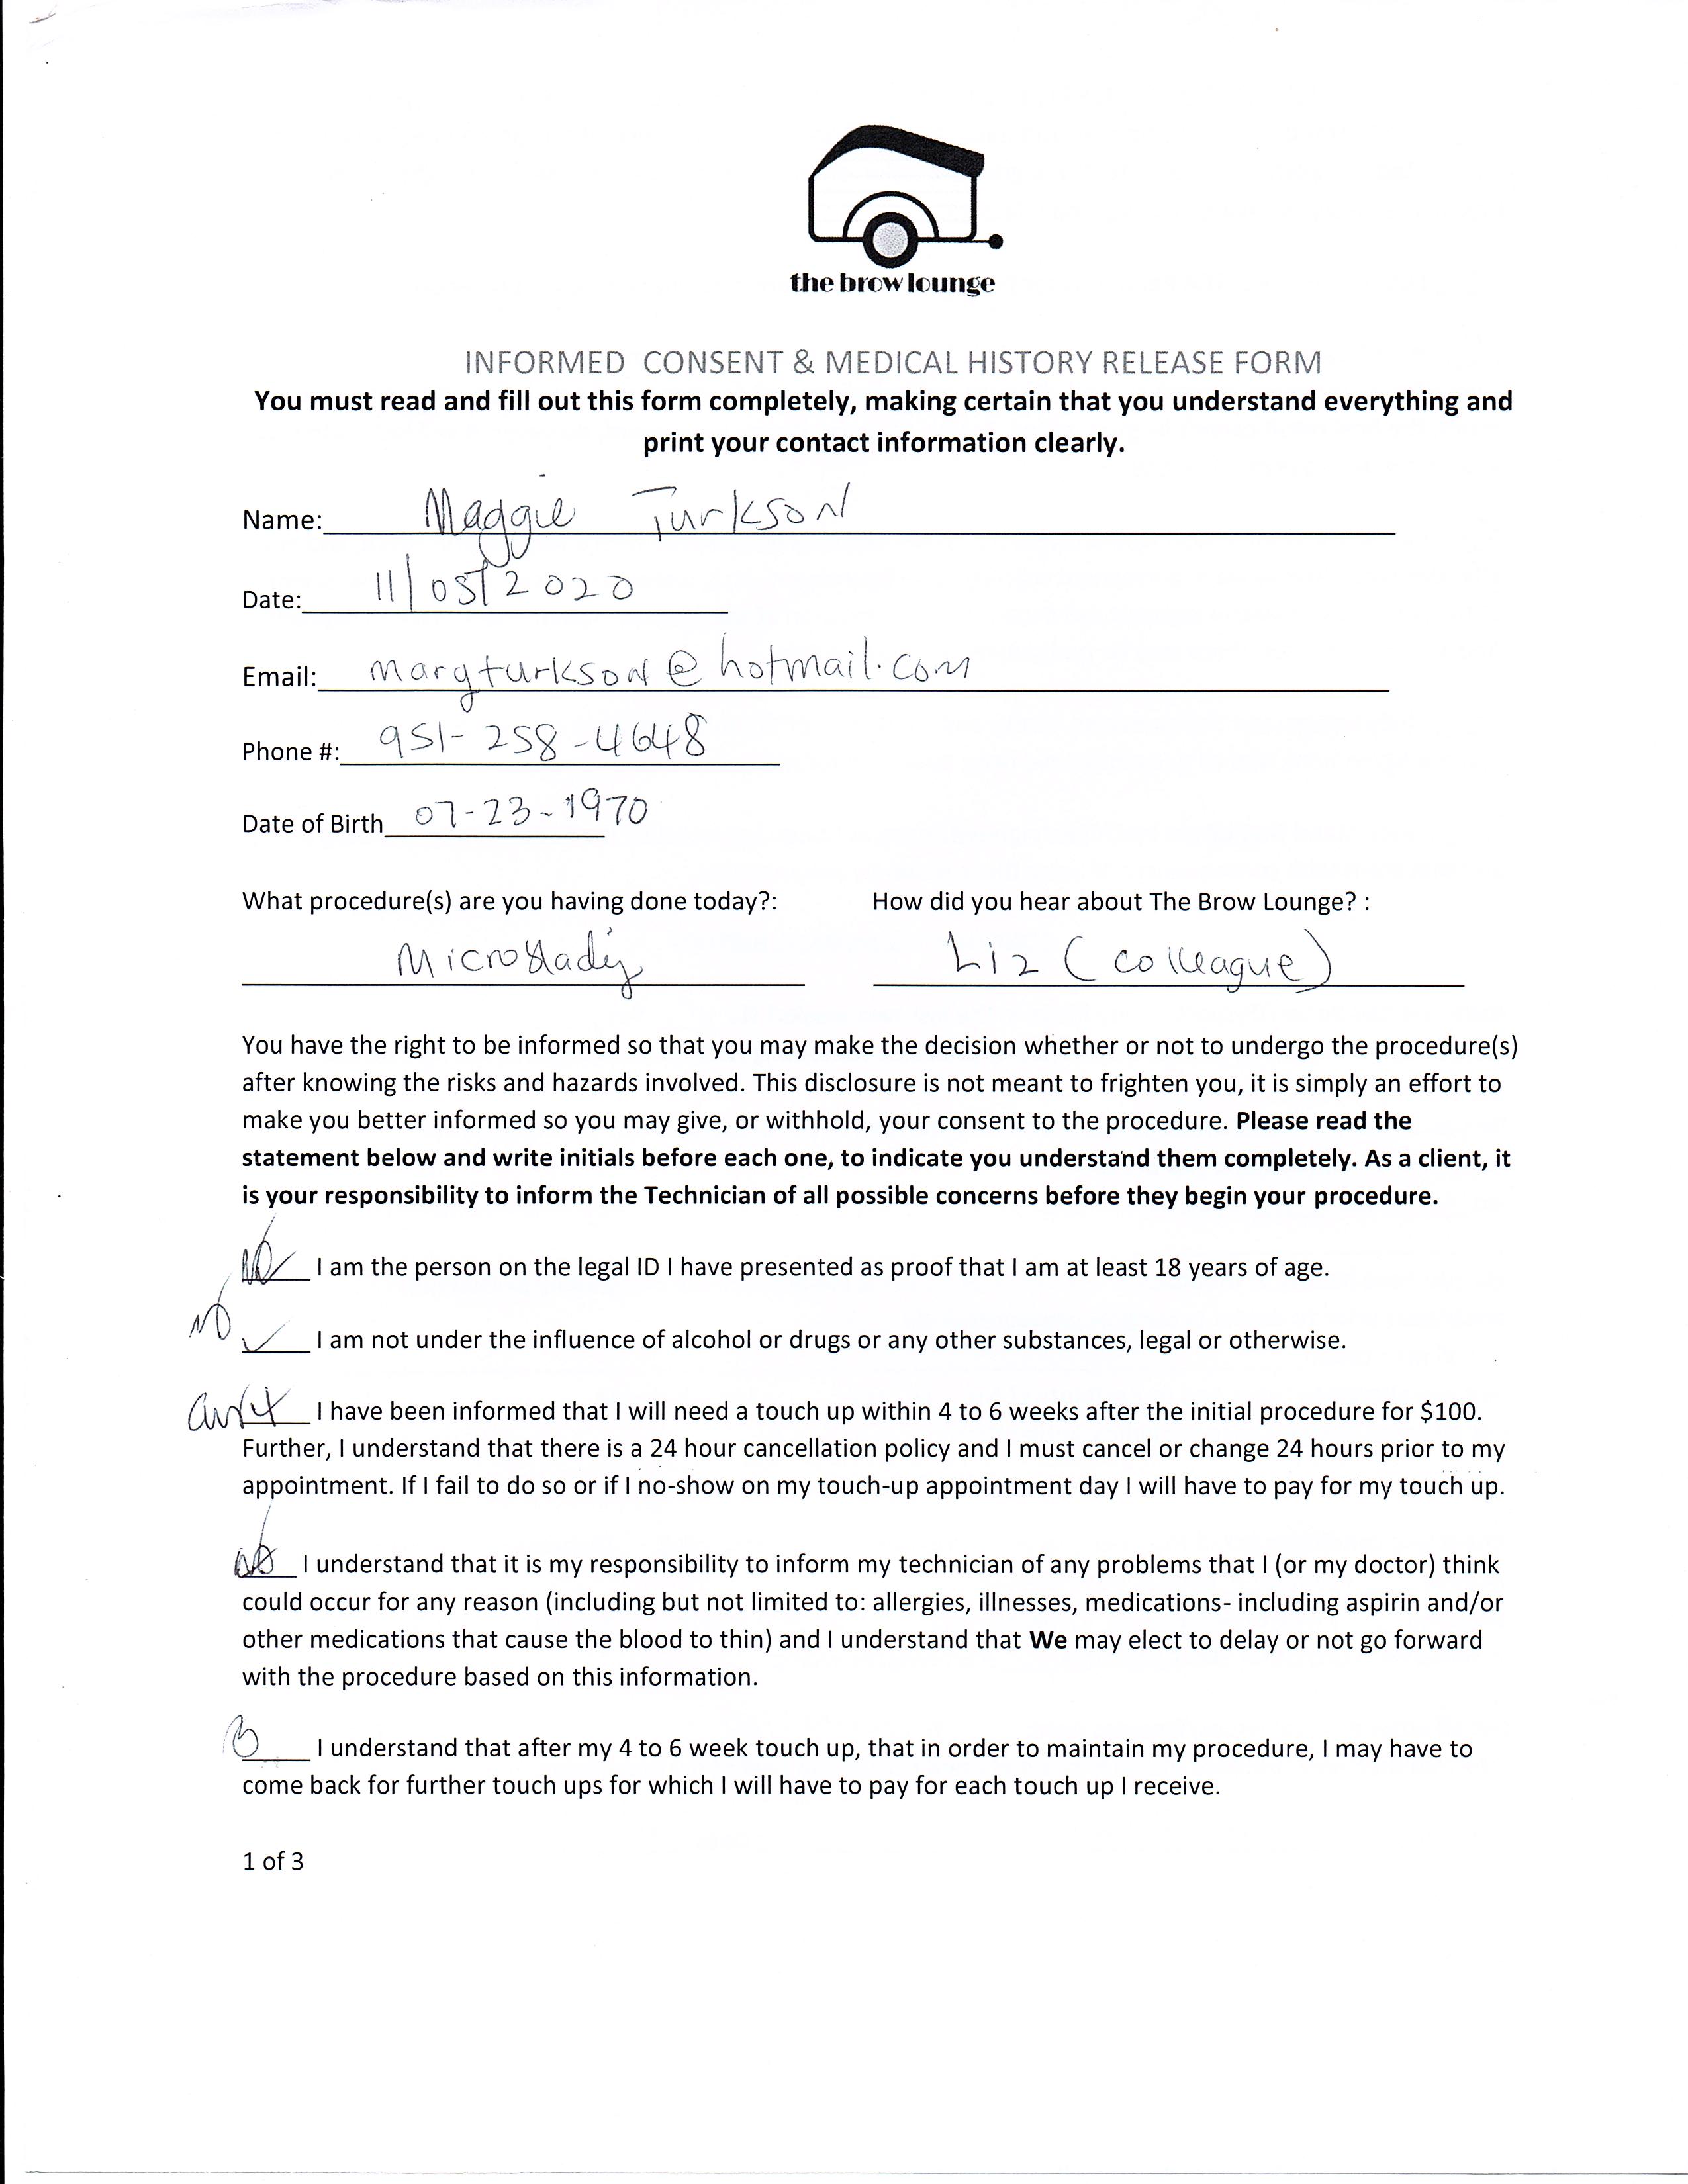 the brow lounge
INFORMED CONSENT & MEDICAL HISTORY RELEASE FORM
You must read and fill out this form completely, making certain that you understand everything and
print your contact information clearly.
Name: Maggie Turkson
Date: 11/05/2020
Email: margturkson@hotmail.com
Phone #: 951-258-4648
Date of Birth 07-23-1970
What procedure(s) are you having done today?: How did you hear about The Brow Lounge? :
Liz (colleague)
You have the right to be informed so that you may make the decision whether or not to undergo the procedure(s)
after knowing the risks and hazards involved. This disclosure is not meant to frighten you, it is simply an effort to
make you better informed so you may give, or withhold, your consent to the procedure. Please read the
statement below and write initials before each one, to indicate you understand them completely. As a client, it
is your responsibility to inform the Technician of all possible concerns before they begin your procedure.
I am the person on the legal ID I have presented as proof that I am at least 18 years of age.
I am not under the influence of alcohol or drugs or any other substances, legal or otherwise.
I have been informed that I will need a touch up within 4 to 6 weeks after the initial procedure for $100.
Further, I understand that there is a 24 hour cancellation policy and I must cancel or change 24 hours prior to my
appointment. If I fail to do so or if I no-show on my touch-up appointment day I will have to pay for my touch up.
I understand that it is my responsibility to inform my technician of any problems that I (or my doctor) think
could occur for any reason (including but not limited to: allergies, illnesses, medications- including aspirin and/or
other medications that cause the blood to thin) and I understand that We may elect to delay or not go forward
with the procedure based on this information.
I understand that after my 4 to 6 week touch up, that in order to maintain my procedure, I may have to
come back for further touch ups for which I will have to pay for each touch up I receive.
1 of 3